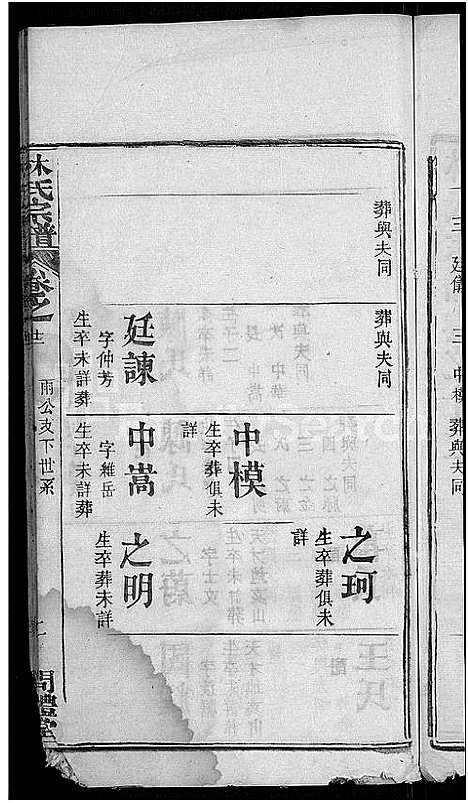 三
三
中模
葬與夫同
葬與夫同
葬與夫同
廷諫
字仲芳
生卒未詳
中模
生卒葬俱未
詳
中嵩
字維岳
生卒未詳葬
之珂
生卒葬俱未
詳
之明
生卒葬未詳
林氏宗譜
卷之
雨公支下世系
問禮堂
王氏